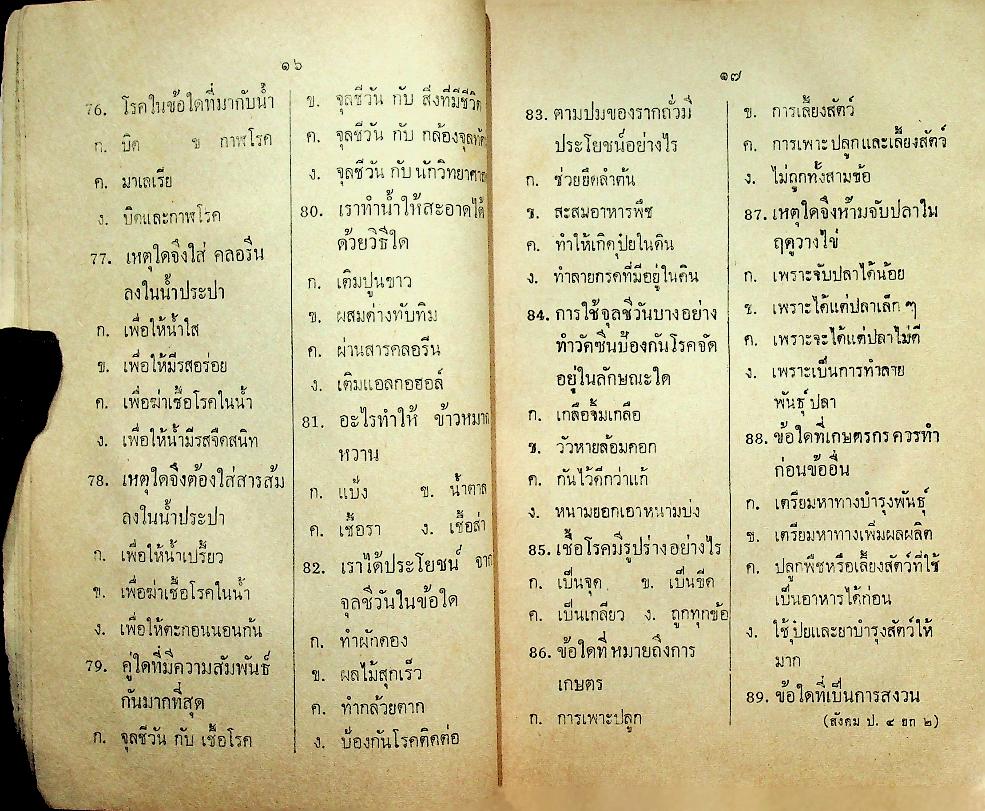 ๑๖
76. โรคในข้อใดที่มากับน้ำ
ก. บิด ข กาฬโรค
ค. มาเลเรีย
ง. บิดและกาฬโรค
77. เหตุใดจึงใส่ คลอรีน
ลงในน้ำประปา
ก. เพื่อให้น้ำใส
ข. เพื่อให้มีรสอร่อย
ค. เพื่อฆ่าเชื้อโรคในน้ำ
ง. เพื่อให้น้ำมีรสจืดสนิท
78. เหตุใดจึงต้องใส่สารส้ม
ลงในน้ำประปา
ก. เพื่อให้น้ำเปรี้ยว
ข. เพื่อฆ่าเชื้อโรคในน้ำ
ง. เพื่อให้ตะกอนนอนก้น
79. คู่ใดที่มีความสัมพันธ์
กันมากที่สุด
ก. จุลชีวัน กับ เชื้อโรค
ข. จุลชีวัน กับ สิ่งที่มีชีวิต
ค. จุลชีวัน กับ
ง. จุลชีวัน กับ
80. เราทำน้ำให้สะอาดได้
ด้วยวิธีใด
ก. เติมปูนขาว
ข. ผสมด่างทับทิม
ค. ผ่านสารคลอรีน
ง. เติมแอลกอฮอล์
81. อะไรทำให้ ข้าวหมาก
หวาน
ก. แป้ง ข. น้ำตาล
ค. เชื้อรา ง. เชื้อส่า
82. เราได้ประโยชน์ จาก
จุลชีวันในข้อใด
ก. ทำผักดอง
ข. ผลไม้สุกเร็ว
ค. ทำกล้วยตาก
ง. ป้องกันโรคติดต่อ
๑๗
83. ตามปมของรากถั่วมี
ประโยชน์อย่างไร
ก. ช่วยยึดลำต้น
ข. สะสมอาหารพืช
ค. ทำให้เกิดปุ๋ยในดิน
ง. ทำลายกรดที่มีอยู่ในดิน
84. การใช้จุลชีวันบางอย่าง
ทำวัคซีนป้องกันโรคจัด
อยู่ในลักษณะใด
ก. เกลือจิ้มเกลือ
ข. วัวหายล้อมคอก
ค. กันไว้ดีกว่าแก้
ง. หนามยอกเอาหนามบ่ง
85. เชื้อโรคมีรูปร่างอย่างไร
ก. เป็นจุด ข. เป็นขีด
ค. เป็นเกลียว ง. ถูกทุกข้อ
86. ข้อใดที่หมายถึงการ
เกษตร
ก. การเพาะปลูก
ข. การเลี้ยงสัตว์
ค. การเพาะปลูกและเลี้ยงสัตว์
ง. ไม่ถูกทั้งสามข้อ
87. เหตุใดจึงห้ามจับปลาใน
ฤดูวางไข่
ก. เพราะจับปลาได้น้อย
ข. เพราะได้แต่ปลาเล็ก ๆ
ค. เพราะจะได้แต่ปลาไม่ดี
ง. เพราะเป็นการทำลาย
พันธุ์ปลา
88. ข้อใดที่เกษตรกรควรทำ
ก่อนข้ออื่น
ก. เตรียมหาทางบำรุงพันธุ์
ข. เตรียมหาทางเพิ่มผลผลิต
ค. ปลูกพืชหรือเลี้ยงสัตว์ที่ใช้
เป็นอาหารได้ก่อน
ง. ใช้ปุ๋ยและยาบำรุงสัตว์ให้
มาก
89. ข้อใดที่เป็นการสงวน
(สังคม ป. ๔ ยก ๒)